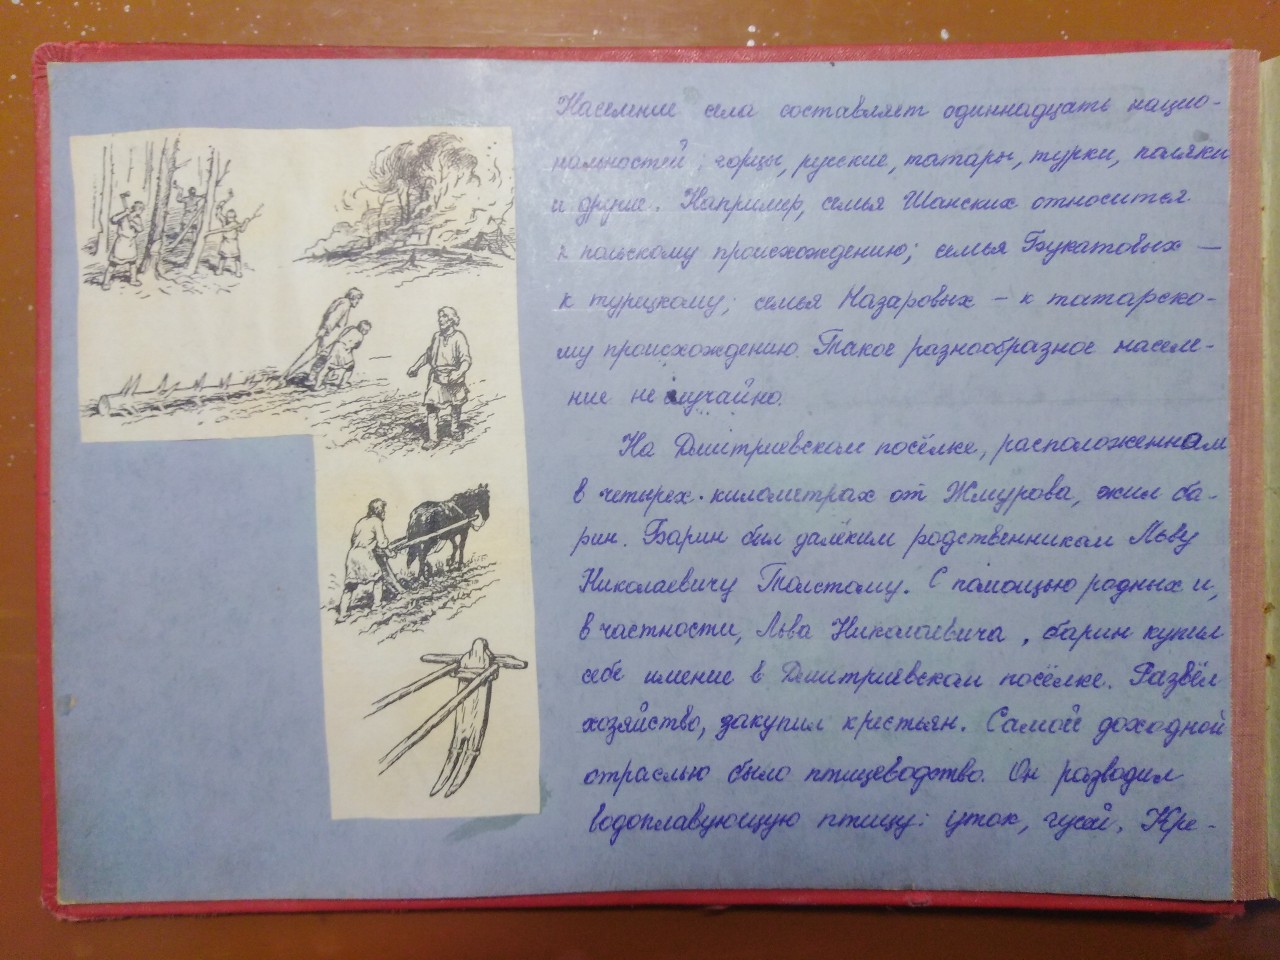 Население села составляет одиннадцать нацио-
нальностей: горцы, русские, татары, турки, поляки
и другие. Например, семья Шанских относится
к польскому происхождению; семья Букатовых —
к турецкому; семья Назаровых — к татарско-
му происхождению. Такое разнообразное населе-
ние не случайно.
На Дмитриевском посёлке, расположенном
в четырех километрах от Жмурова, жил ба-
рин. Барин был далёким родственником Льву
Николаевичу Толстому. С помощью родных и,
в частности, Льва Николаевича, барин купил
себе имение в Дмитриевском посёлке. Развёл
хозяйство, закупил крестьян. Самой доходной
отраслью было птицеводство. Он разводил
водоплавующую птицу: уток, гусей. Кре-